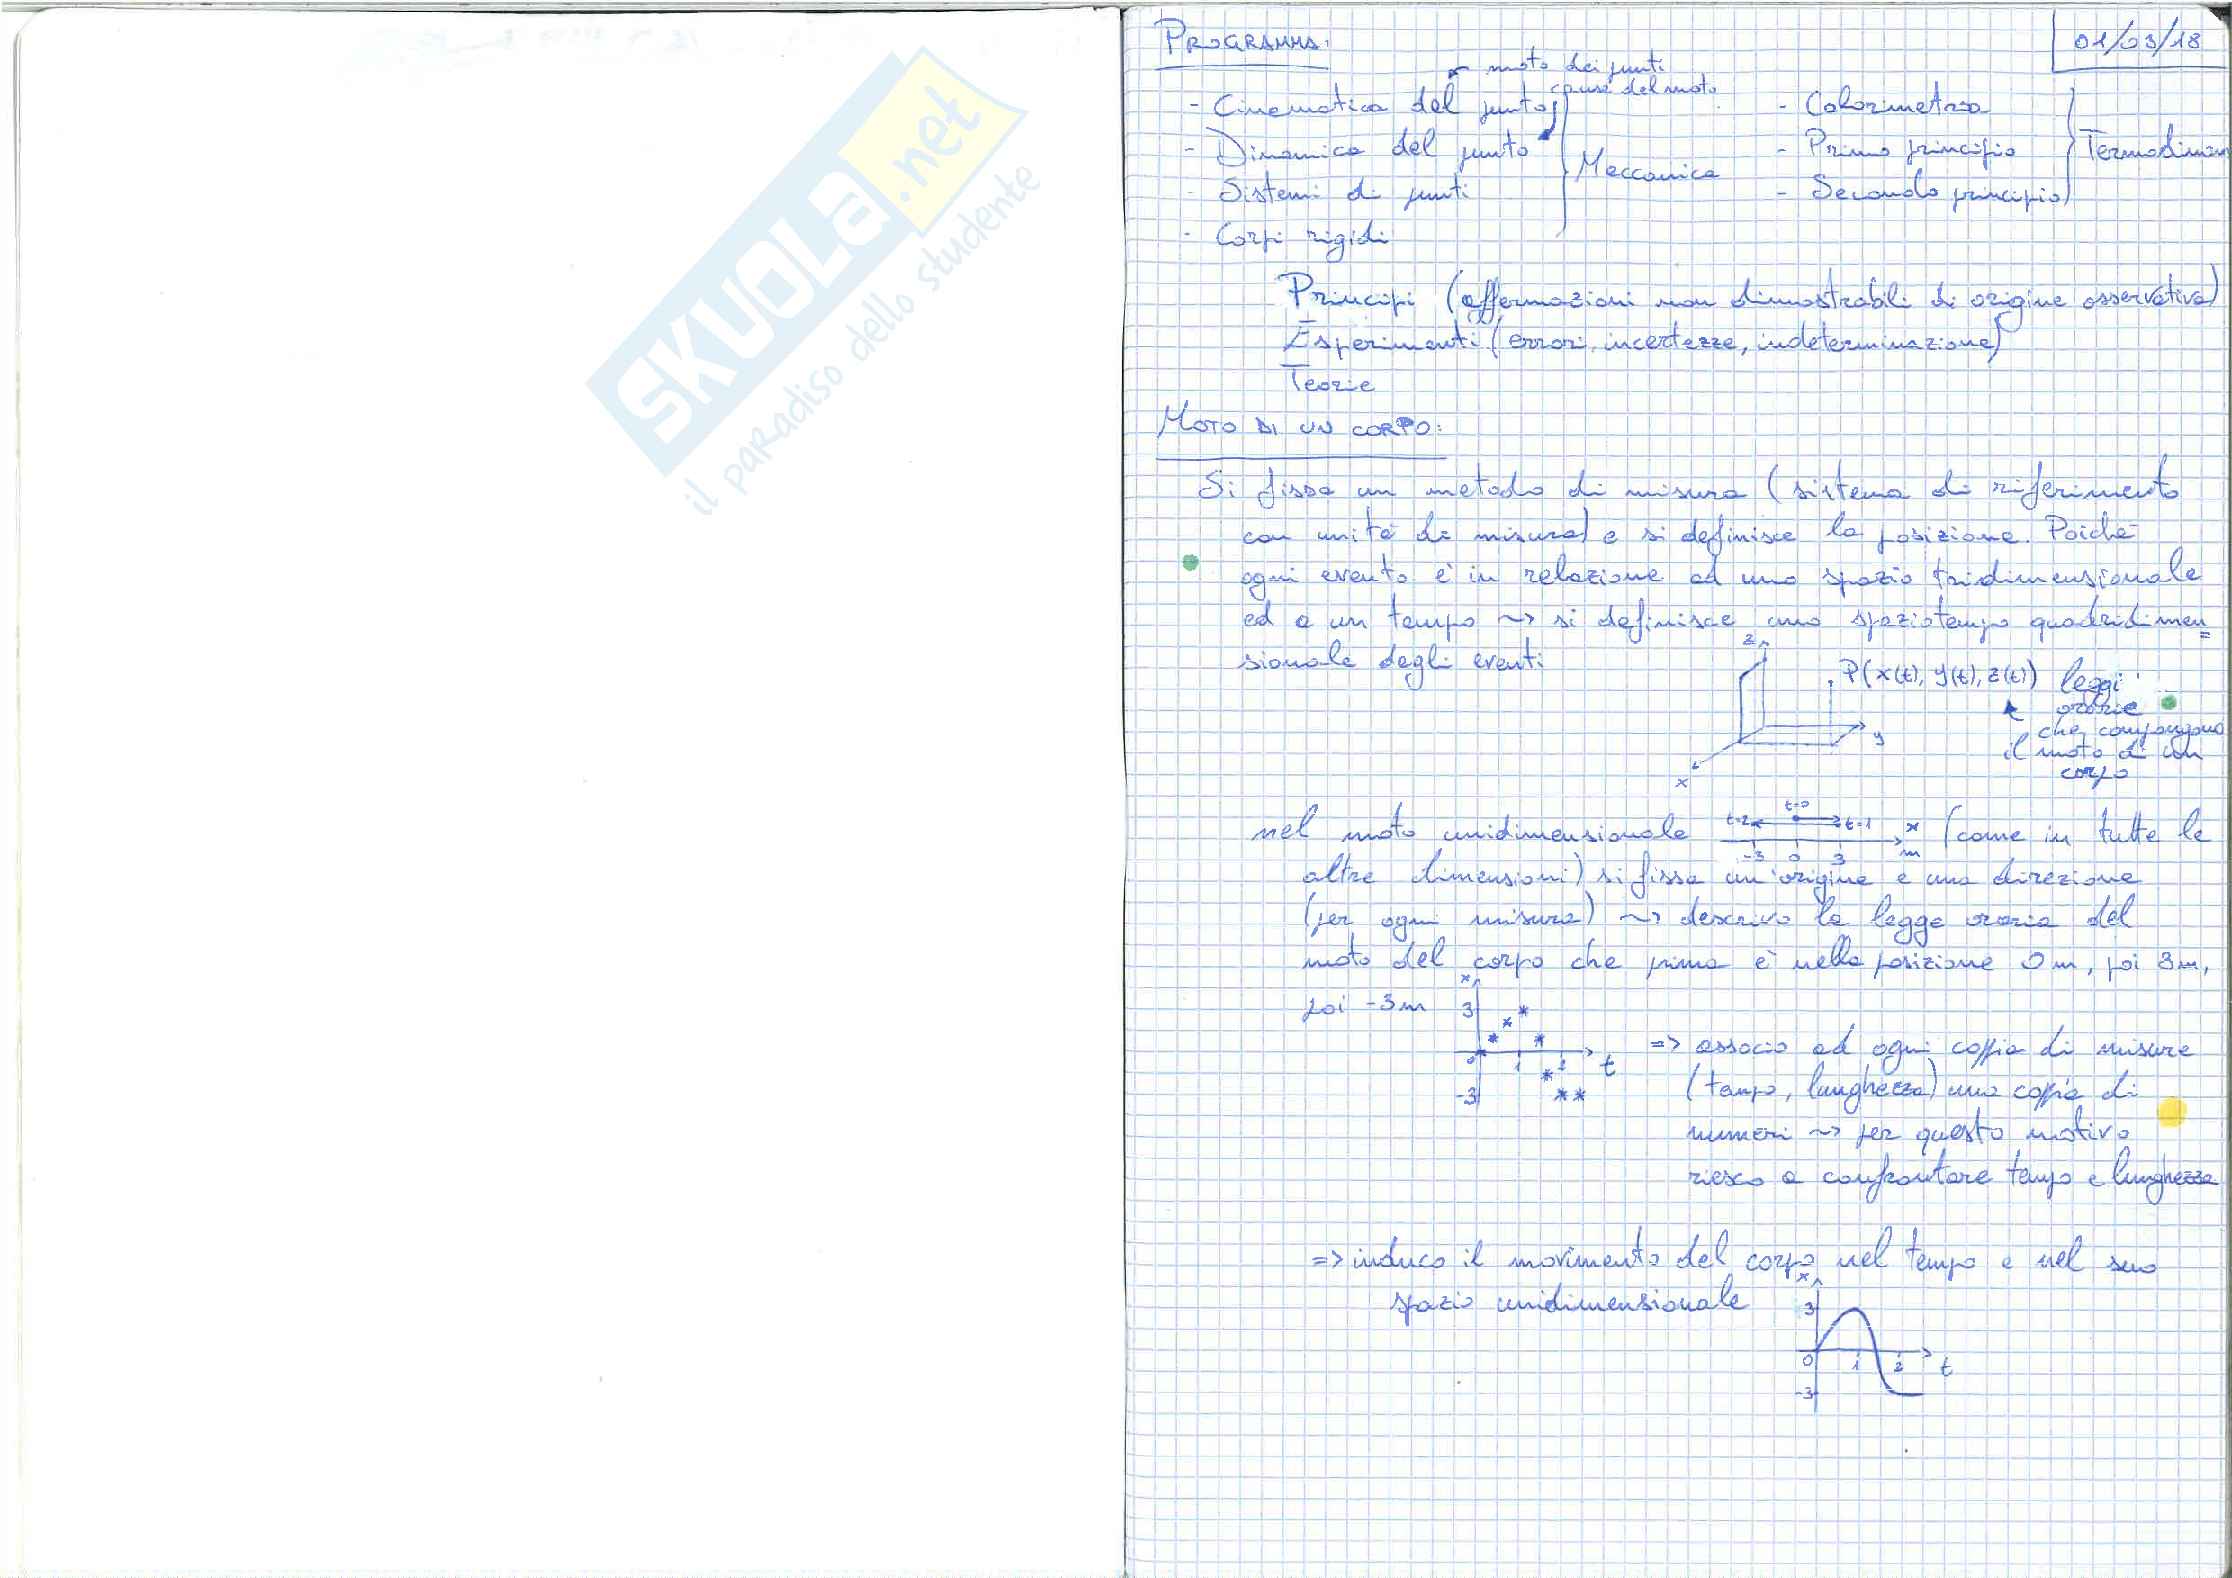 SKUOLA.net
il paradiso dello studente
PROGRAMMA:
01/03/18
moto dei punti
cause del moto
- Cinematica del punto
- Dinamica del punto
- Sistemi di punti
- Corpi rigidi
Meccanica
- Calorimetria
- Primo principio
- Secondo principio
Termodinam
Principi (affermazioni non dimostrabili di origine osservativa)
Esperimenti (errori, incertezze, indeterminazione)
Teorie
MOTO DI UN CORPO:
Si fissa un metodo di misura (sistema di riferimento
con unità di misura) e si definisce la posizione. Poiché
ogni evento è in relazione ad uno spazio tridimensionale
ed a un tempo ~> si definisce uno spaziotempo quadridimen=
sionale degli eventi
z
y
x
P(x(t), y(t), z(t)) leggi
orarie
che compongono
il moto di un
corpo
nel moto unidimensionale
t=0
t=2
t=1
x
-3 0 3 m
(come in tutte le
altre dimensioni) si fissa un'origine e una direzione
(per ogni misura) ~> descrivo la legge oraria del
moto del corpo che prima è nella posizione 0m, poi 3m,
poi -3m
x
3
0 1 2 t
-3
=> associo ad ogni coppia di misure
(tempo, lunghezza) una coppia di
numeri ~> per questo motivo
riesco a confrontare tempo e lunghezza
=> induco il movimento del corpo nel tempo e nel suo
spazio unidimensionale
x
3
0 1 2 t
-3